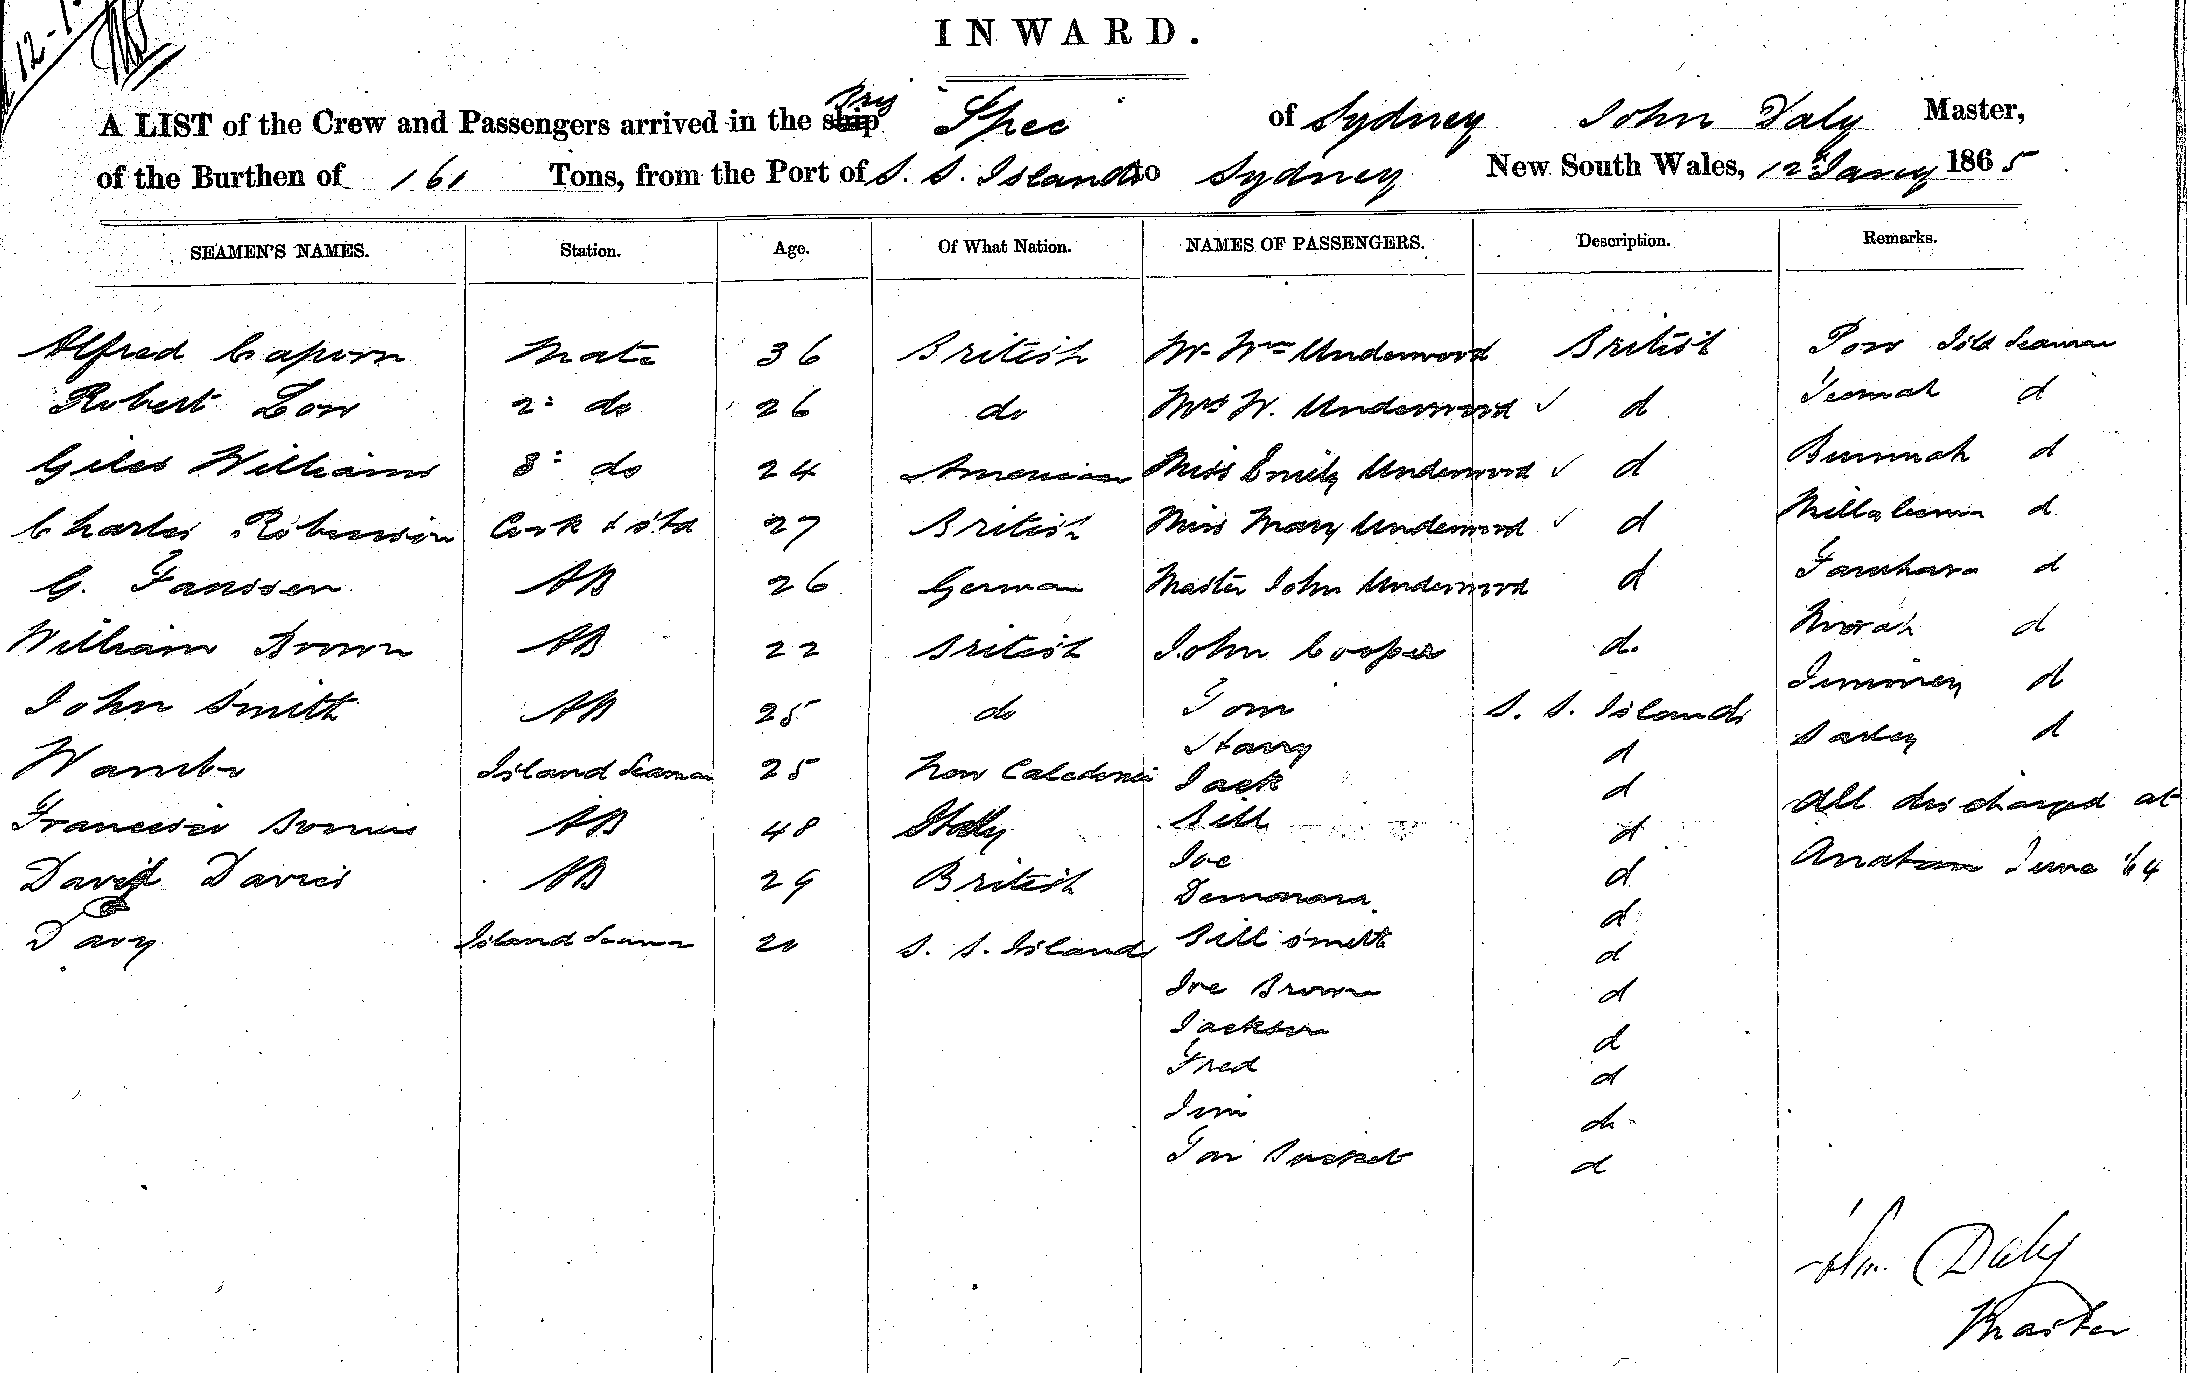 12-1
INWARD.
A LIST of the Crew and Passengers arrived in the ship Brig Spec of Sydney John Daly Master,
of the Burthen of 161 Tons, from the Port of S. S. Islands to Sydney New South Wales, 12 Jany 1865
SEAMEN'S NAMES. Station. Age. Of What Nation. NAMES OF PASSENGERS. Description. Remarks.
Alfred Caporn Mate 36 British Mr Wm Underwood British Pow Isld Seaman
Robert Low 2: do 26 do Mrs W. Underwood d d
Giles Williams 3: do 24 American Miss Emily Underwood d d
Charles Robinson Cook & Std 27 British Miss Mary Underwood d d
G. Janssen AB 26 German Master John Underwood d d
William Brown AB 22 British John Cooper do d
John Smith AB 25 do Tom S. S. Islands Jimmey d
Harry d d
Wambo Island Seaman 25 New Caledonia Jack d
Francisco AB 48 Italy Bill d All discharged at
Joe d
David Davies AB 29 British June 64
d
Davy Island Seaman 20 S. S. Islands Bill Smith d
Joe Brown d
Jackson d
Fred d
Jim do
d
Jn. Daly
Master